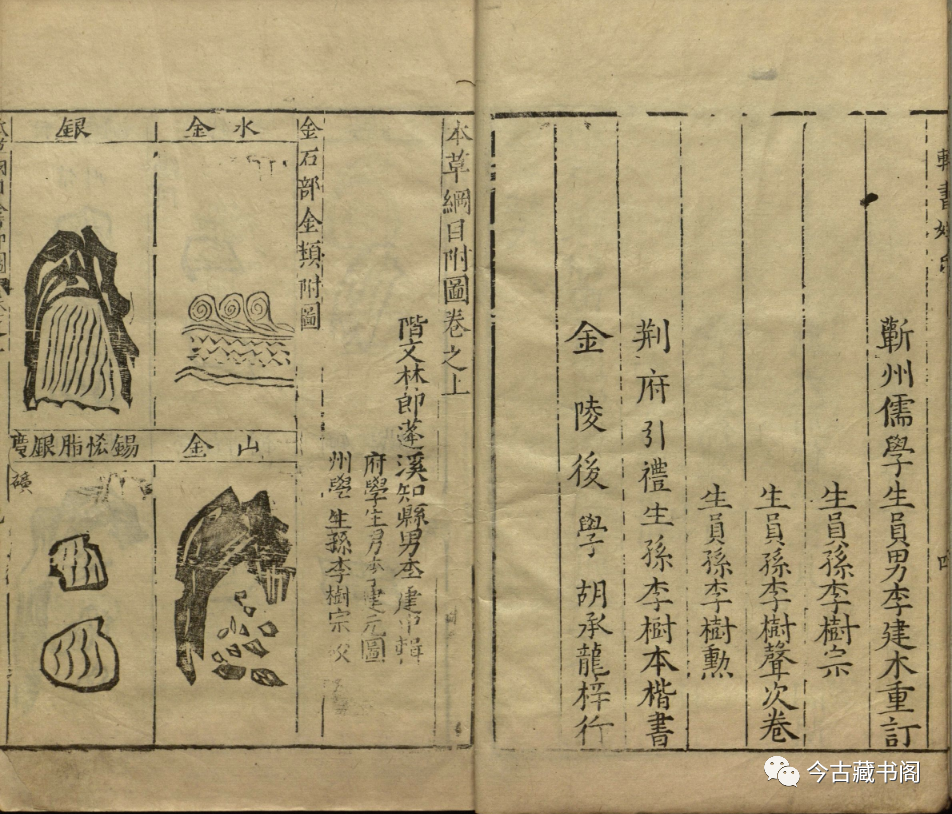 蘄州儒學生員男李建木重訂
生員孫李樹宗
生員孫李樹聲次卷
生員孫李樹勲
荆府引禮生孫李樹本楷書
金陵後學胡承龍梓行
本草綱目附圖卷之上
階文林郎蓬溪知縣男李建中輯
府學生男李建元圖
州學生孫李樹宗校
金石部金類附圖
水金
山金
銀
錫悋脂銀廣
礦
今古藏书阁